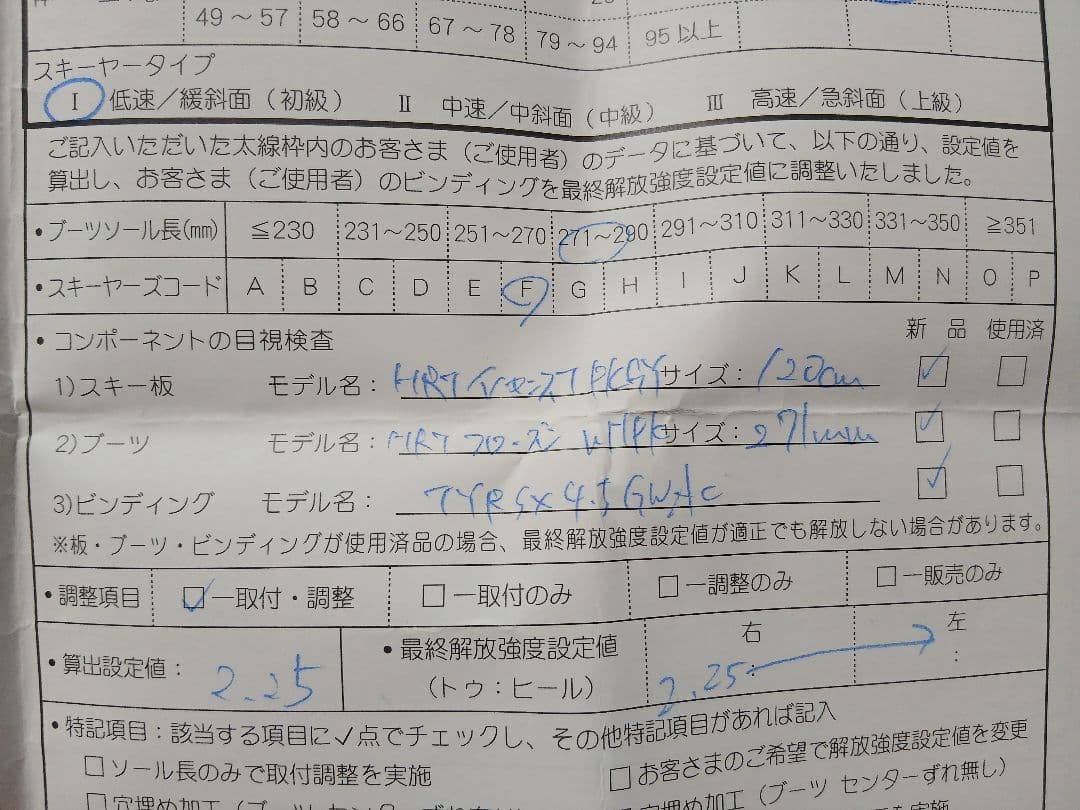 49～57 58～66 67～78 79～94 95以上
スキーヤータイプ
Ⅰ 低速／緩斜面（初級） Ⅱ 中速／中斜面（中級） Ⅲ 高速／急斜面（上級）
ご記入いただいた太線枠内のお客さま（ご使用者）のデータに基づいて、以下の通り、設定値を
算出し、お客さま（ご使用者）のビンディングを最終解放強度設定値に調整いたしました。
•ブーツソール長(mm) ≦230 231～250 251～270 271～290 291～310 311～330 331～350 ≧351
•スキーヤーズコード A B C D E F G H I J K L M N O P
•コンポーネントの目視検査 新 品 使用済
1)スキー板 モデル名： サイズ：120cm
2)ブーツ モデル名： サイズ：271mm
3)ビンディング モデル名： 4.5
※板・ブーツ・ビンディングが使用済品の場合、最終解放強度設定値が適正でも解放しない場合があります。
•調整項目 ☑—取付・調整 □—取付のみ □—調整のみ □—販売のみ
•算出設定値： 2.25 •最終解放強度設定値 右 左
（トゥ：ヒール） 2.25： → ：
•特記項目：該当する項目に✓点でチェックし、その他特記項目があれば記入
□ソール長のみで取付調整を実施 □お客さまのご希望で解放強度設定値を変更